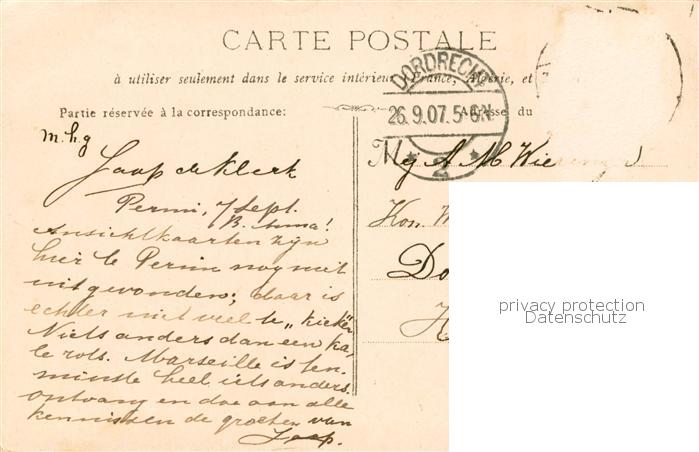 CARTE POSTALE
à utiliser seulement dans le service intérieur, France, Algérie, et
Partie réservée à la correspondance:
Adresse du
DORDRECHT
26.9.07.5-6N
2
m.h.g
Jaap de Klerk
Perim, 7 Sept.
B. Anna!
Ansichtkaarten zijn
hier te Perim nog niet
uitgevonden; daar is
echter niet veel te „kieken"
Niets anders dan een ka-
le rots. Marseille is ten-
minste heel iets anders.
ontvang en doe aan alle
kennissen de groeten van
Jaap.
Mej A M Wie
Kon. W
Do
H
privacy protection
Datenschutz